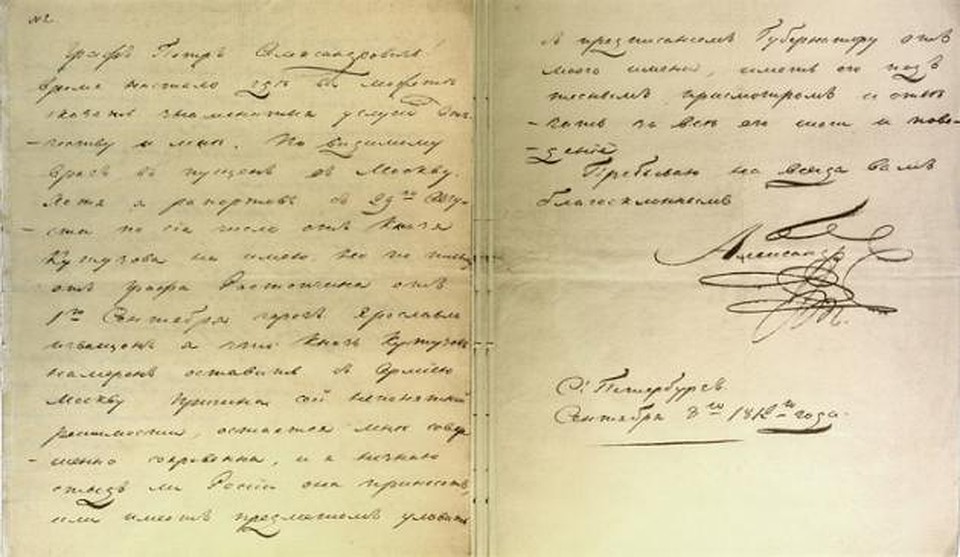 №2
Графъ Петръ Александровичь!
время настало гдѣ вы можете
оказать знаменитыя услуги Оте-
-честву и мнѣ. По видимому
врагъ въ пущенъ въ Москву.
Хотя я рапортовъ съ 29го Авгу-
-ста по сіе число отъ Князя
Кутузова не имею. Но по письму
отъ графа Растопчина отъ
1го Сентября чрезъ Ярославль
извещенъ я что Князь Кутузовъ
намеренъ оставить съ Армiею
Москву. Причина сей непонятной
решимости, остается мнѣ совер-
-шенно сокровенна, и я незнаю
стыдъ ли Россiи она принесетъ,
или имеетъ предметомъ уловить
Я предписываю Губернатору отъ
моего имени, иметь его подъ
теснымъ присмотромъ и отве-
-чать за все его шаги и пове-
-деніе.
Пребываю на всегда вамъ
благосклоннымъ
Александръ
С: Петербургъ.
Сентября 8го 1812го года.